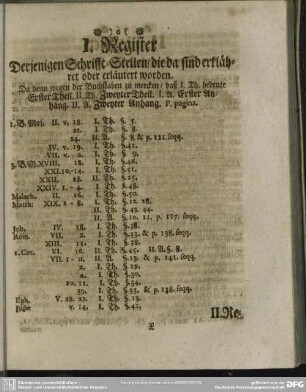 I. Register
Derjenigen Schrifft-Stellen/ die da sind erkläh-
ret oder erläutert worden.
Da denn wegen der Buchstaben zu mercken/ daß I. Th. bedeute
Erster Theil. II. Th. Zweyter Theil. I. A. Erster An-
hang. II. A. Zweyter Anhang. P. pagina.
1. B. Mos. II. v. 18. I. Th. §. 5.
22. I. Th. §. 8.
24. II. A. §. 8 & p. 121. sqq.
IV. v. 19. I. Th. §. 41.
VII. v. 2. I. Th. §. 9.
3. B. M. XVIII. 18. I. Th. §. 46.
XXI. 10.-14. I. Th. §. 51.
XXII. 28. II. Th. §. 25.
XXIV. 1.-4. I. Th. §. 48.
Malach. II. 16. I. Th. §. 50.
Matth. XIX. 1-8. I. Th. §. 12. 28.
II. Th. §. 43. 44.
II. A. §. 10. 11, p. 117. sqq.
Joh. IV. 18. I. Th. §. 38.
Rom. VII. 2. I. Th. §. 33. & p. 138. sqq.
XIII. 13. I. Th. §. 38.
1. Cor. VI. 16. II. Th. §. 45. II. A. §. 8.
VII. 1-11. II. A. §. 13. & p. 141. sqq.
2. I. Th. §. 29.
4. I. Th. §. 39.
10. 11. I. Th. §. 54.
39. I. Th. §. 33. & p. 138. sqq.
Eph. V. 28. 29. I. Th. §. 13.
v. 14. I. Th. §. 42.
II. Re-